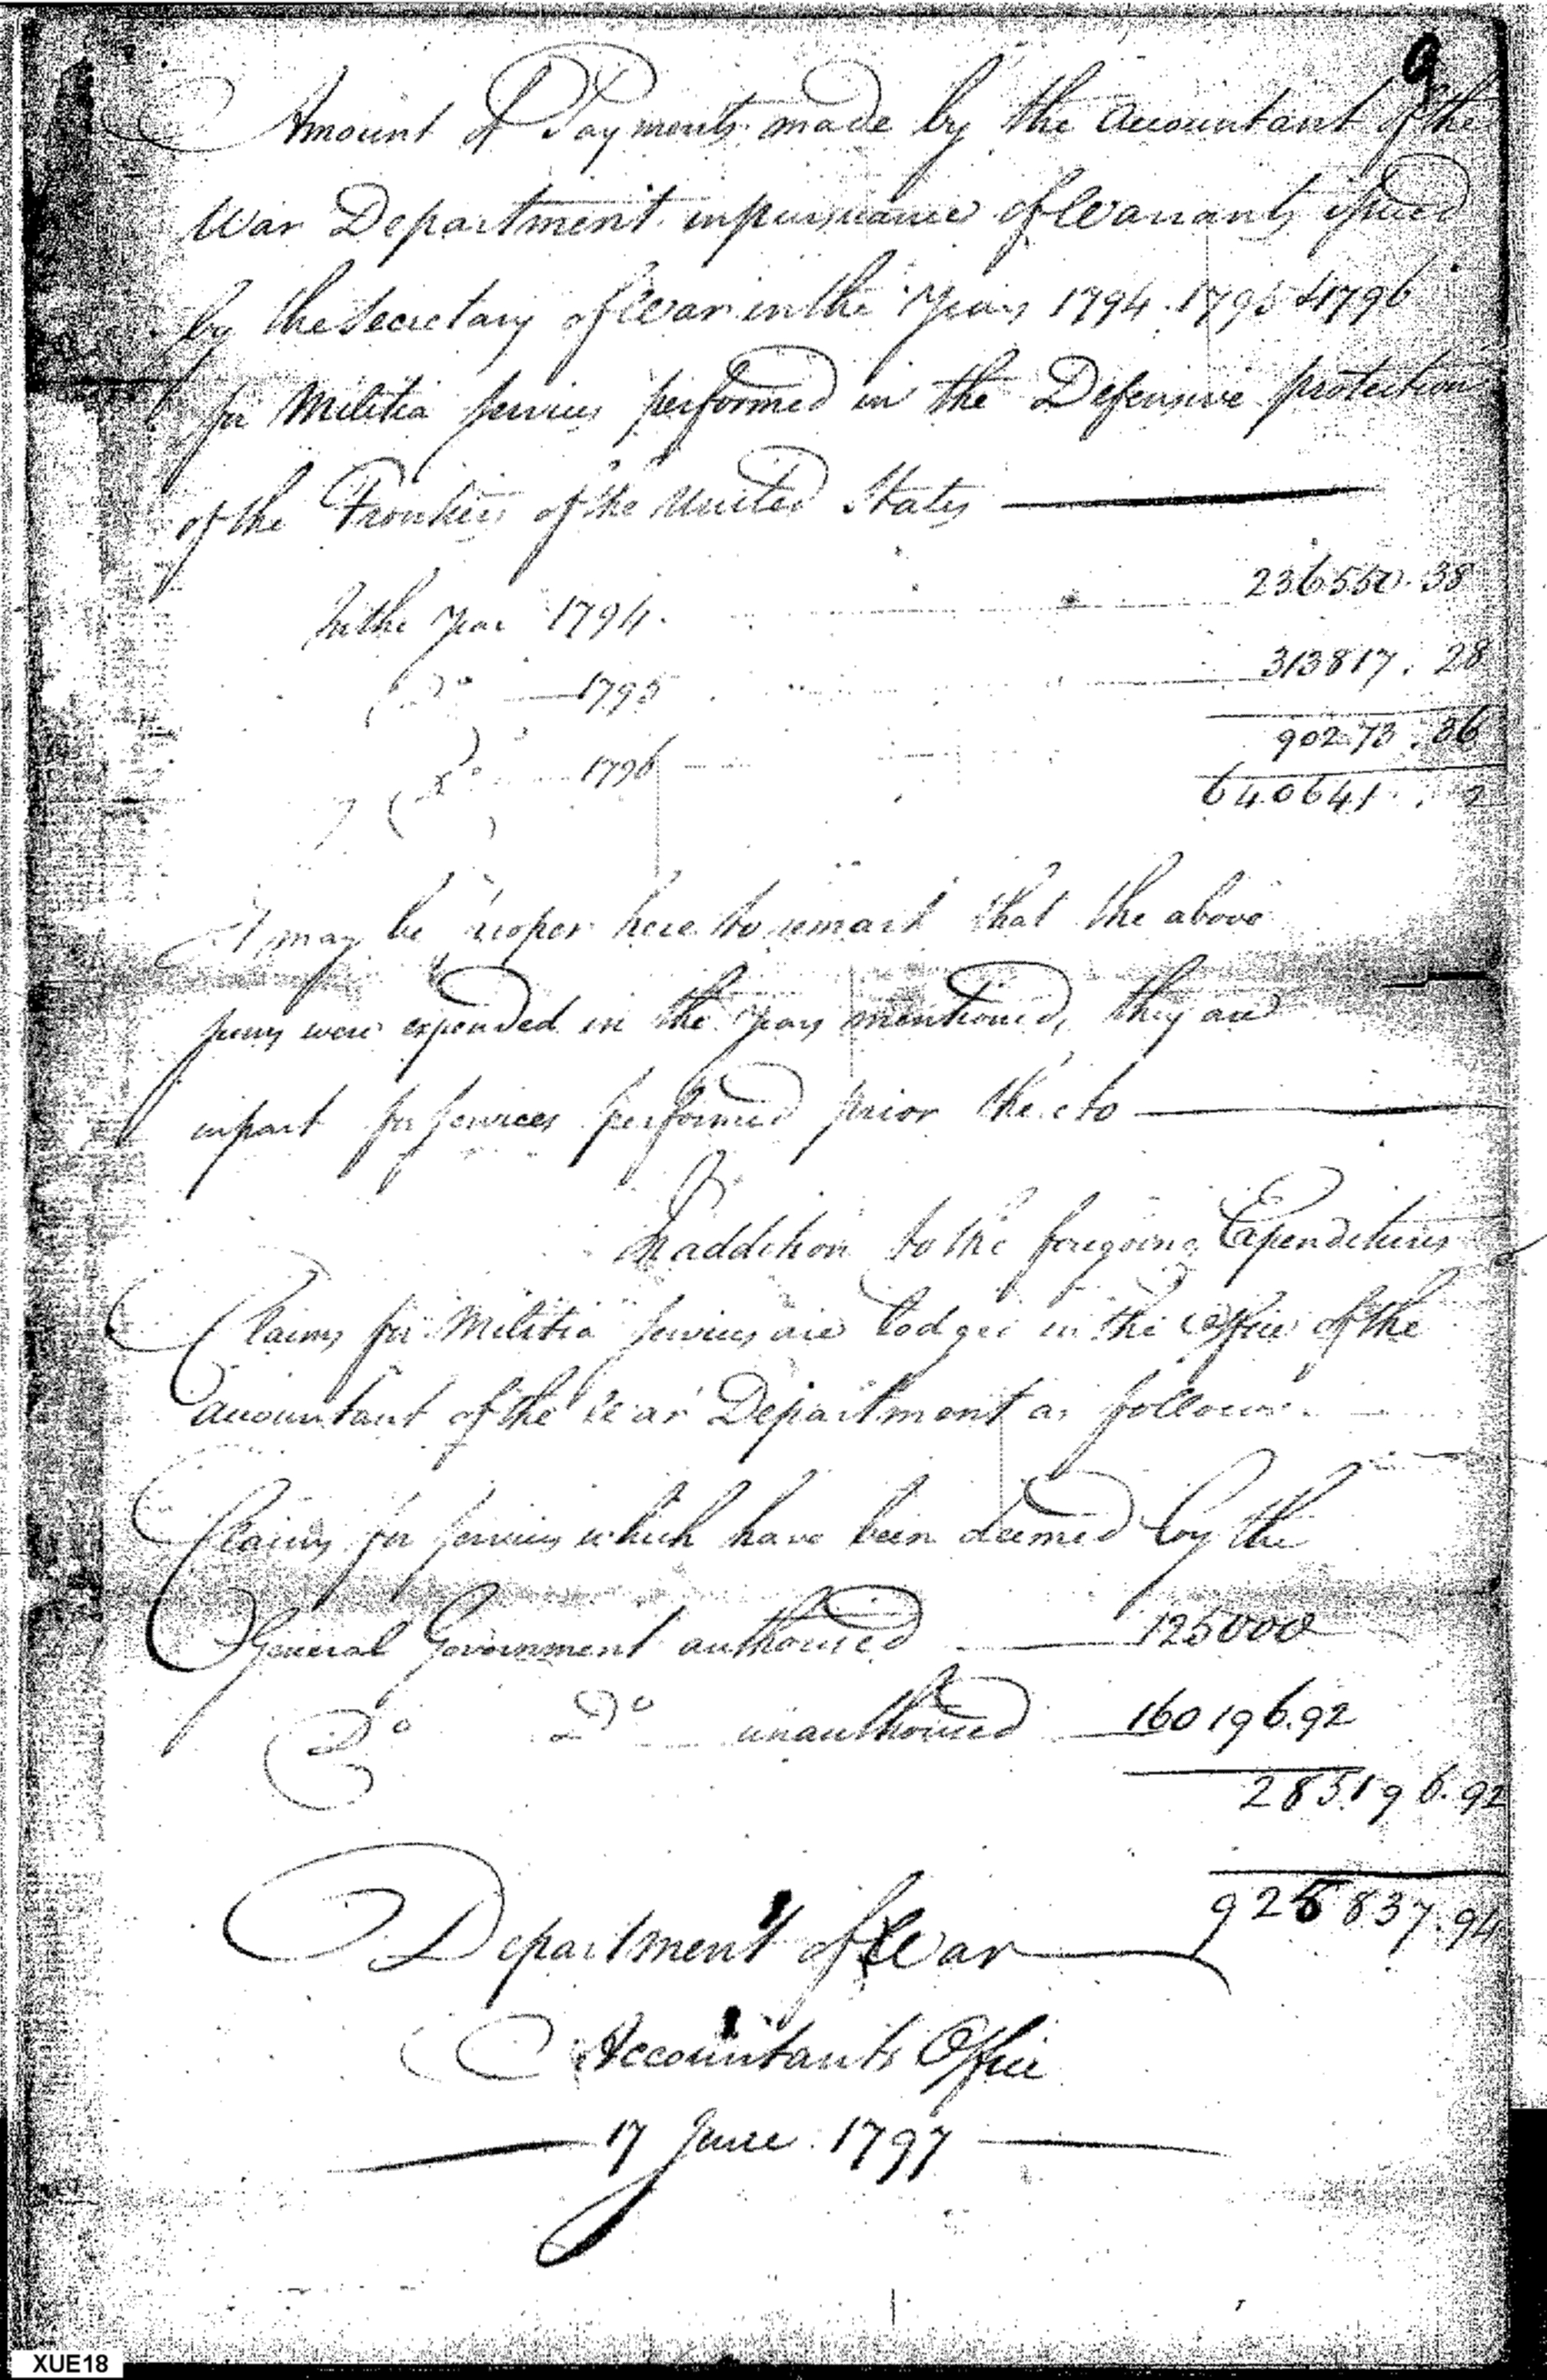 9
Amount of Payments made by the Accountant of the
War Department in pursuance of Warrants issued
by the Secretary of War in the Years 1794. 1795 & 1796
for Militia services performed in the Defensive protection
of the Frontiers of the United States
In the Year 1794. 236550.38
Do 1795 313817.28
Do 1796 90273.36
640641. 2
It may be proper here to remark that the above
sums were expended in the Years mentioned, they are
in part for services performed prior thereto
In addition to the foregoing Expenditures
Claims for Militia services are lodged in the Office of the
Accountant of the War Department as follows.
Claims for services which have been deemed by the
General Government authorised 125000
Do Do unauthorised 160196.92
285196.92
925837.94
Department of War
Accountants Office
17 June 1797
XUE18